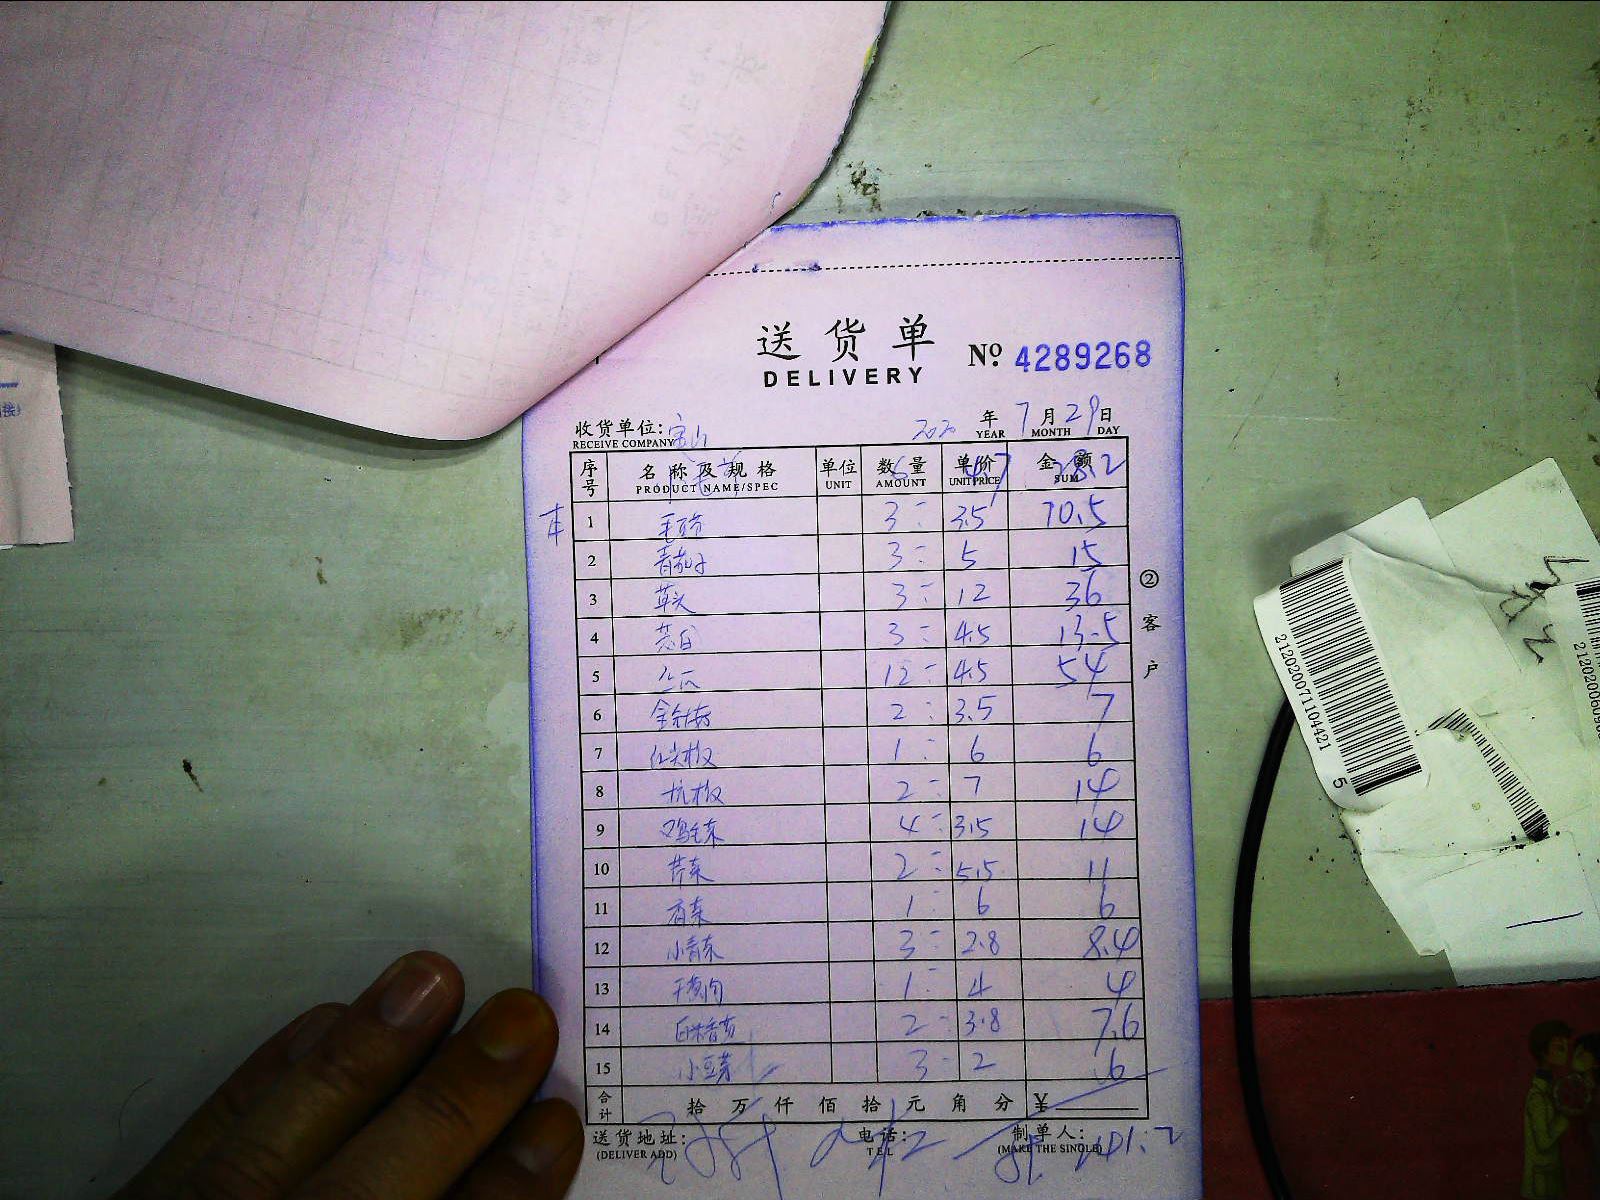 送货单
DELIVERY
No 4289268
收货单位: 宝山 2020 年 7 月 29 日
RECEIVE COMPANY YEAR MONTH DAY
序号 名称及规格 单位 数量 单价 金额
PRODUCT NAME/SPEC UNIT AMOUNT UNIT PRICE SUM
4.7 28.2
1 3 3.5 10.5
2 青茄子 3 5 15
3 草头 3 12 36
4 茭白 3 4.5 13.5
5 12 4.5 54
6 金针菇 2 3.5 7
7 红尖椒 1 6 6
8 杭椒 2 7 14
9 鸡毛菜 4 3.5 14
10 芹菜 2 5.5 11
11 香菜 1 6 6
12 小青菜 3 2.8 8.4
13 1 4 4
14 2 3.8 7.6
15 小豆芽 3 2 6
合计 拾 万 仟 佰 拾 元 角 分 ¥
送货地址: 电话: 制单人:
(DELIVER ADD) TEL (MAKE THE SINGLE)
②客户
2120200711044215